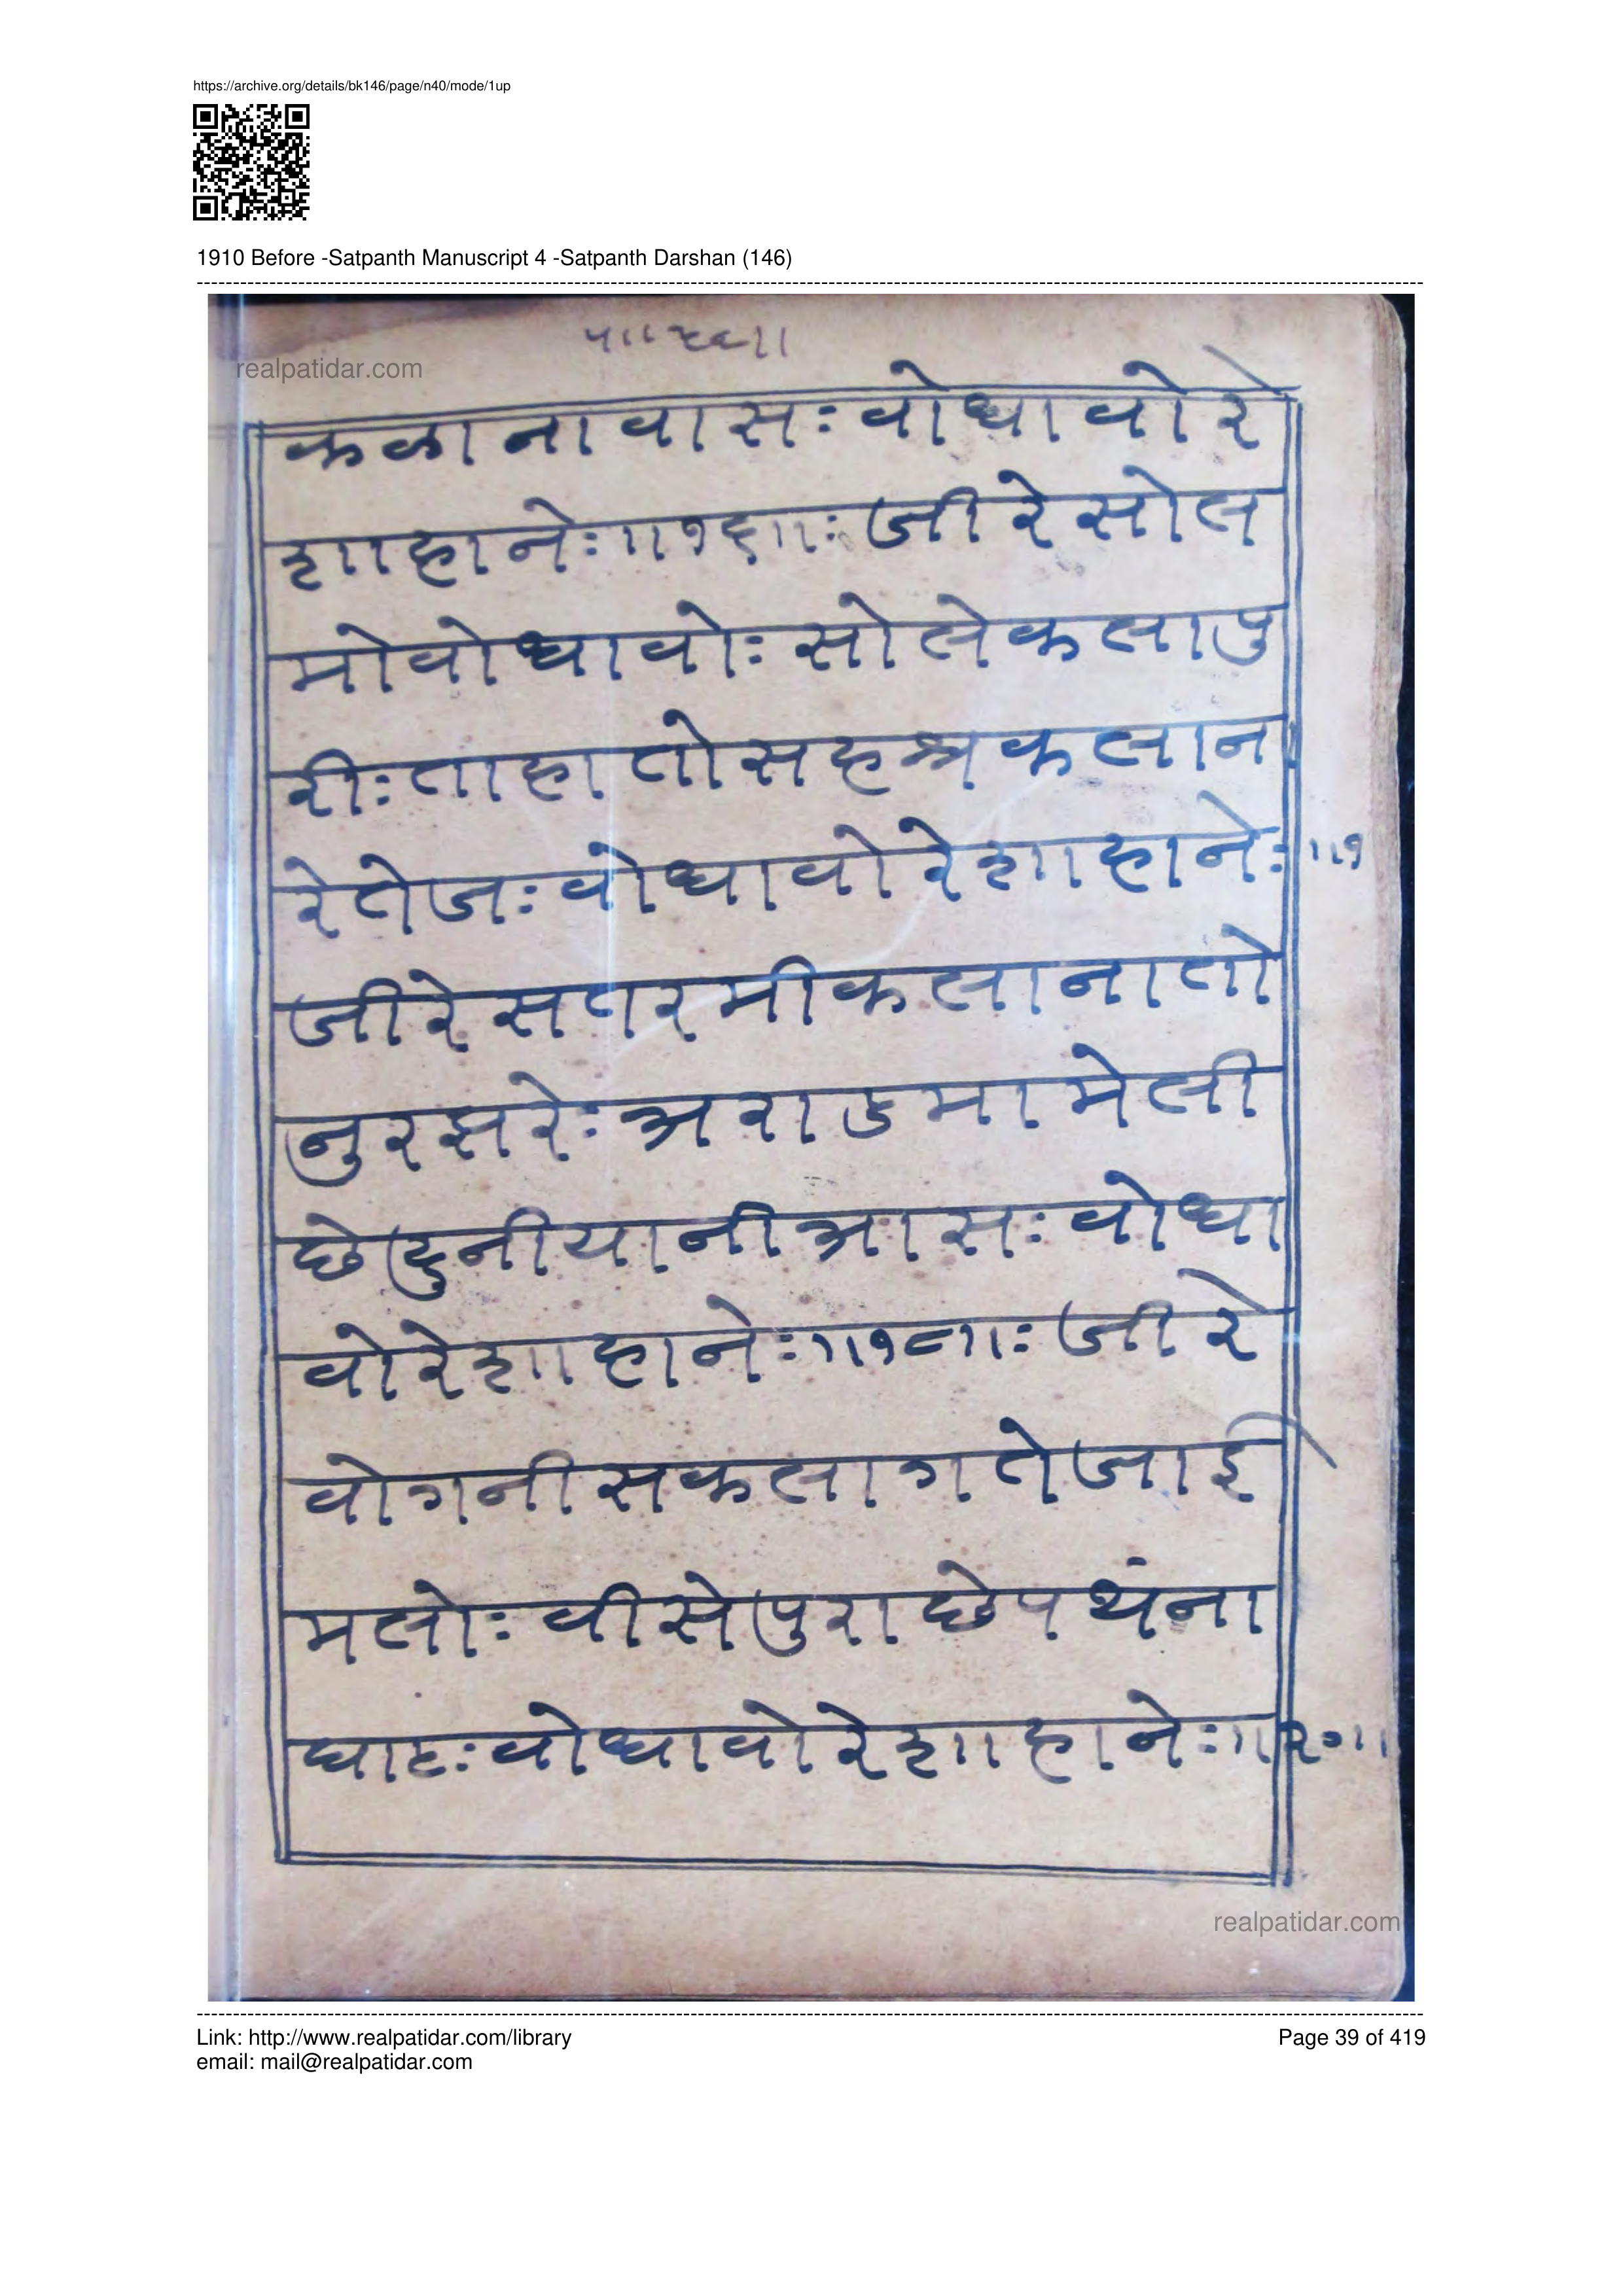 https://archive.org/details/bk146/page/n40/mode/1up
1910 Before -Satpanth Manuscript 4 -Satpanth Darshan (146)
realpatidar.com
कळा ना वा सः वो धा वो रे
शा हा नेः ॥१६॥ः जी रे सो ल
मो वो धा वोः सो ले क ला पु
रीः ता हा तो स ह श्र क ला न
रे ते जः वो धा वो रे शा हा नेः ॥१
जी रे स त र मी क ला ना तो
नु र झ रेः अ रा ड मा मे ली
छे दु नी या नी आ सः वो धा
वो रे शा हा नेः ॥१८॥ः जी रे
वो ग नी स क ला ग ते जा ई
म लोः वी से पु रा छे प थं ना
घा टः वो धा वो रे शा हा नेः ॥२०॥
realpatidar.com
Link: http://www.realpatidar.com/library
Page 39 of 419
email: mail@realpatidar.com